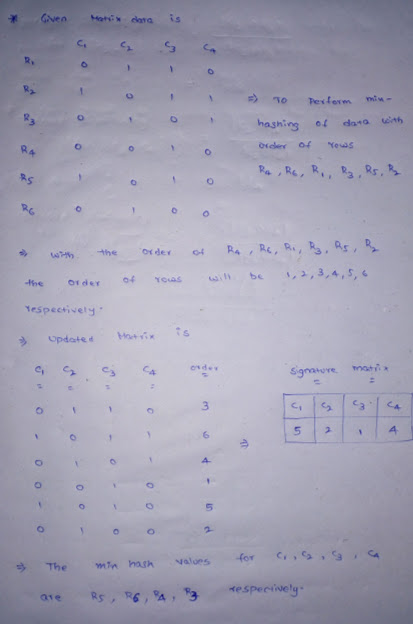 * Given Matrix data is
C1 C2 C3 C4
R1 0 1 1 0
R2 1 0 1 1
R3 0 1 0 1
R4 0 0 1 0
R5 1 0 1 0
R6 0 1 0 0
⇒ To Perform min-
hashing of data with
order of rows
R4, R6, R1, R3, R5, R2
⇒ with the order of R4, R6, R1, R3, R5, R2
the order of rows will be 1, 2, 3, 4, 5, 6
respectively.
⇒ Updated Matrix is
C1 C2 C3 C4 order
0 1 1 0 3
1 0 1 1 6
0 1 0 1 4
0 0 1 0 1
1 0 1 0 5
0 1 0 0 2
⇒
Signature matrix
C1 C2 C3 C4
5 2 1 4
⇒ The min hash values for C1, C2, C3, C4
are R5, R6, R4, R3 respectively.